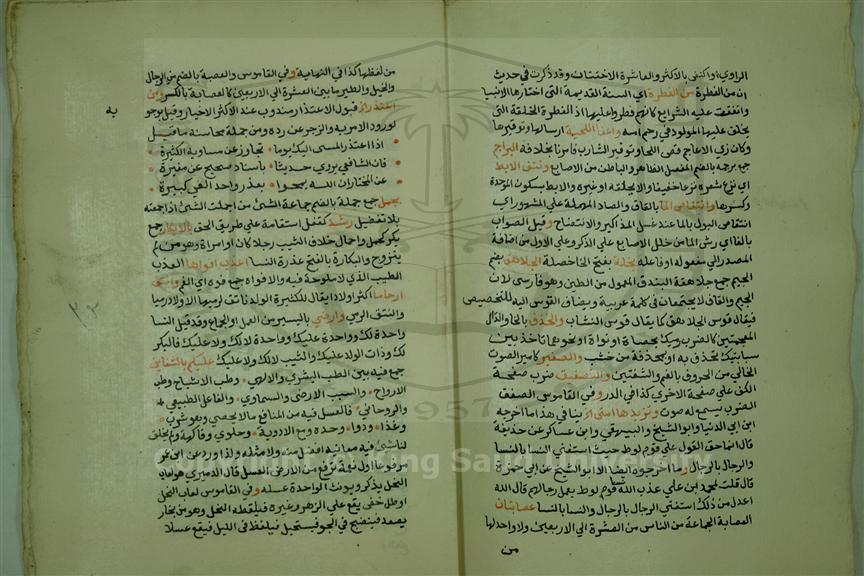 الراوي او اكتفى بالاكثر والعاشرة الاختتان وقد ذكرت في حديث
ان من الفطرة من الفطرة اي السنة القديمة التى اختارها الانبيا
واتفقت عليه الشرايع كانهم فطروا عليها اذ الفطرة الخلقة التى
يخلق عليها المولود في رحم امه واعفا اللحية ارسالها وتوفيرها
وكان زي الاعاجم قص اللحا وتوفير الشارب فامرنا بخلافه البراجم
جمع برجمه بالضم المفصل الظاهر او الباطن من الاصابع ونتف الابط
اي نزع شعره نزعا خفيفا والا يحلقه او غيره والابط بسكون الموحدة
وكسرها وانتقاص الما بالقاف والصاد المهملة على المشهور اي
انتقاص البول بالما عند غسل المذاكير والانتضاح وقيل الصواب
بالفا اي رش الما من خلل الاصابع على الذكر وعلى الاول من اضافة
المصدر الى مفعوله او فاعله بفتح الخا خصلة الجلاهق بضم
الجيم جمع جلاهقة البندق المعمول من الطين وهو فارسى لان
الجيم والقاف لا يجتمعان في كلمة عربية ويضاف القوس اليه للتخصيص
فيقال قوس الجلاهق كما يقال قوس النشاب والخذف بالخا والذال
المعجمتين كالضرب رميك بحصاة او نواة او نحوهما تاخذ بين
سبابتيك تخذف به او بمخذفة من خشب والصفير كامير الصوت
الخالي من الحروف بالفم والشفتين والتصفيق ضرب صفحة
الكف على صفحة الاخرى كذا في الدر وفي القاموس الصفق
الضرب يسمع له صوت وتزيدها امتى زينا في هذا ما اخرجه
ابن ابي الدنيا وابو الشيخ والبيهقي وابن عساكر عن حذيفة
قال انما حق القول على قوم لوط حيث استغنى النسا بالنسا
والرجال بالرجال وما خرجوه ايضا الا ابو الشيخ عن ابي حمزة
قال قلت لمحمد ابن علي عذب الله نسا قوم لوط بعمل رجالهم قال الله
اعدل من ذلك استغنى الرجال بالرجال والنسا بالنسا عصابتان
العصابة الجماعة من الناس من العشرة الى الاربعين ولا واحد لها
من
من لفظها كذا في النهاية وفي القاموس والعصبة بالضم من الرجال
والخيل والطير ما بين العشرة الى الاربعين كالعصابة بالكسر ومن
اعتذر قبول الاعتذار مندوب عند الاكثر الاخيار وقيل بوجوبه
لورود الامر به والزجر عن رده ومن جملة محاسنه ما قيل
اذا اعتذر المسى اليك يوما تجاوز عن مساويه الكثيرة
فان الشافعي يروى حديثا باسناد صحيح عن مغيرة
عن المختار ان الله يمحوا بعذر واحد الفى كبيرة
بجمل جمع جملة بالضم جماعة الشئ من اجملت الشئ اذا جمعته
بلا تفصيل رشد كقفل استقامة على طريق الحق بالابكار جمع
بكر كحمل واحمال خلاف الثيب رجلا كان او امراة وهو من لم
يتزوج والبكارة بالفتح عذرة النسا اعذب افواها العذب
الطيب الذي لا ملوحة فيه والافواه جمع فوه اي الفم وانتق
ارحاما اكثر اولادا يقال للكثيرة الولد ناتق لرميها الاولاد رميا
والنتق الرمي وارضى باليسير من العمل او الجماع وقد قيل النسا
واحدة لك وواحدة عليك وواحدة لا لك ولا عليك فالبكر
لك وذات الولد عليك والثيب لا لك ولا عليك عليكم بالشفائين
جمع فيه بين الطب البشري والالهى وطب الاشباح وطب
الارواح والسبب الارضى والسماوي والفاعل الطبيعي
والروحاني فالعسل فيه من المنافع ما لا يحصى وهو شرب
وغذا ودوا وحده ومع الادوية وحلوى وفاكهة ولم يخلق
لنا شئ فيه معانيه افضل منه ولا مثله ولذا ورد عن ابن عمر
مرفوعا اول نعمة ترفع من الارض العسل قال الدميري هو لعاب
النحل يذكر ويونث الواحدة عسله وفي القاموس لعاب النحل
او طل خفى يقع على الزهر وغيره فيلقطه النحل وهو من بخار
يصعد فينضج في الجو فيستحيل فيغلظ في الليل فيقع عسلا